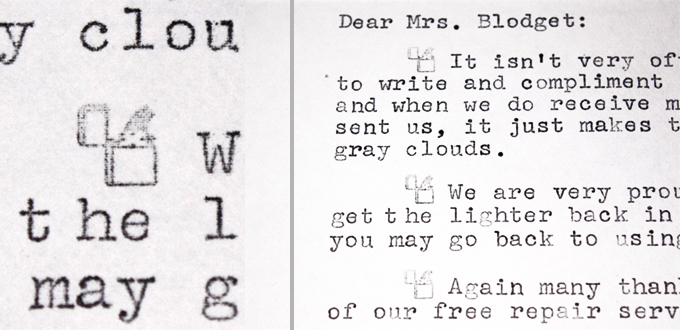 y clou
W
the l
may g
Dear Mrs. Blodget:
It isn't very of
to write and compliment
and when we do receive m
sent us, it just makes t
gray clouds.
We are very prou
get the lighter back in
you may go back to using
Again many than
of our free repair serv